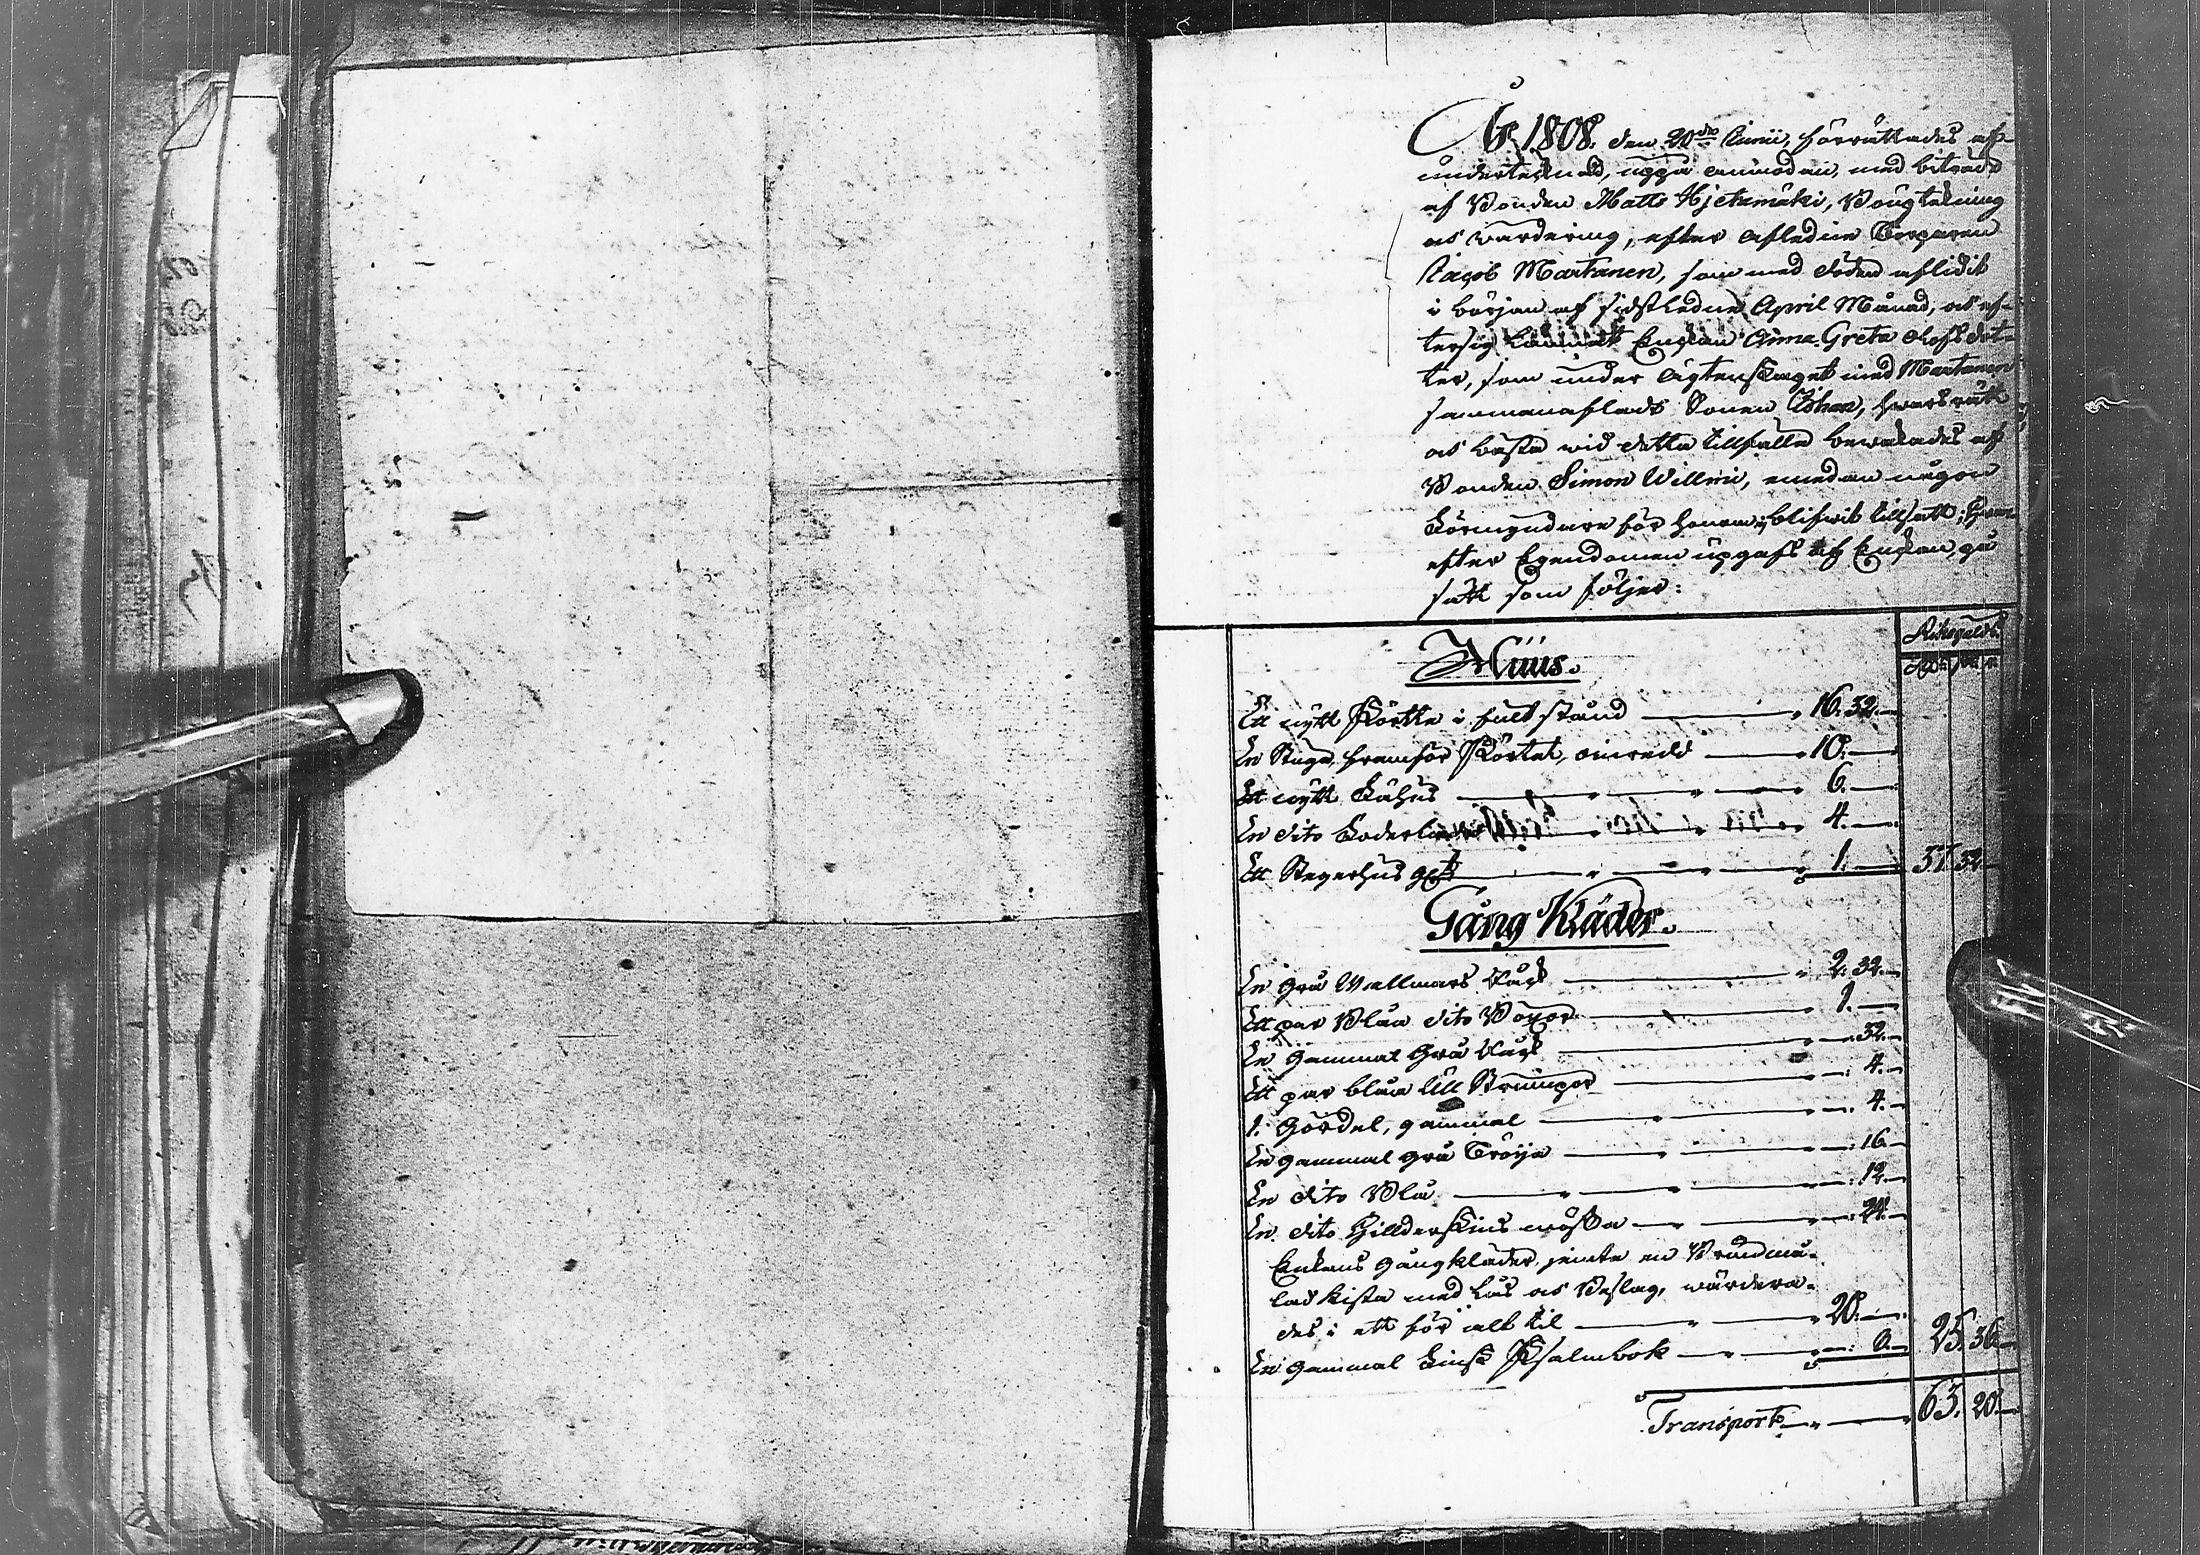 År 1808. den 20de Junii, förrättades af
undertecknad, uppå anmodan, med biträde
af Bonden Matts Hjetamäki, Bougtekning
os värdering, efter afledne Torparen
Jacob Martanen, som med döden aflidit
i början af sidstledne April Månad, os ef-
tersig lämnat Enckan Anna Greta Olofsdot-
ter, som under ägtenskapet med Martanen
sammanaflade Sonen Johan, hvars rätt
os bästa vid detta tillfälle bewakades af
Bonden Simon Willmi, emedan någon
Förmyndare för honom ej blifwit tillsatt; hvar-
efter Egendomen upgafs af Enckan, på
sätt som följer:
Riksgälds
Huus.
Rdr
Ett nytt Pörtte i fult stånd 16. 32.
En Stuga, framför Pörtet, oinredd 10.
Ett nytt Fähus 6.
En dito Foderlada 4.
Ett Stegerhus 1. 37. 32
Gång Kläder.
En grå Wallmars Råck 2. 32.
Ett par Blåa dito Böxor 1.
En gammal Grå Råck 32.
Ett par blåa Ull Strumpor 4.
1. Gördel, gammal 4.
En gammal grå Tröija 16
En dito Blå 12.
En dito Hillderskins mössa 24.
Enkans gångkläder, jemte en Brunmå-
lad kista med Lås os Beslag, wärdera-
des i ett för alt til 20.
En gammal Finsk Psalmbok 8. 25. 36
Transport 63. 20.